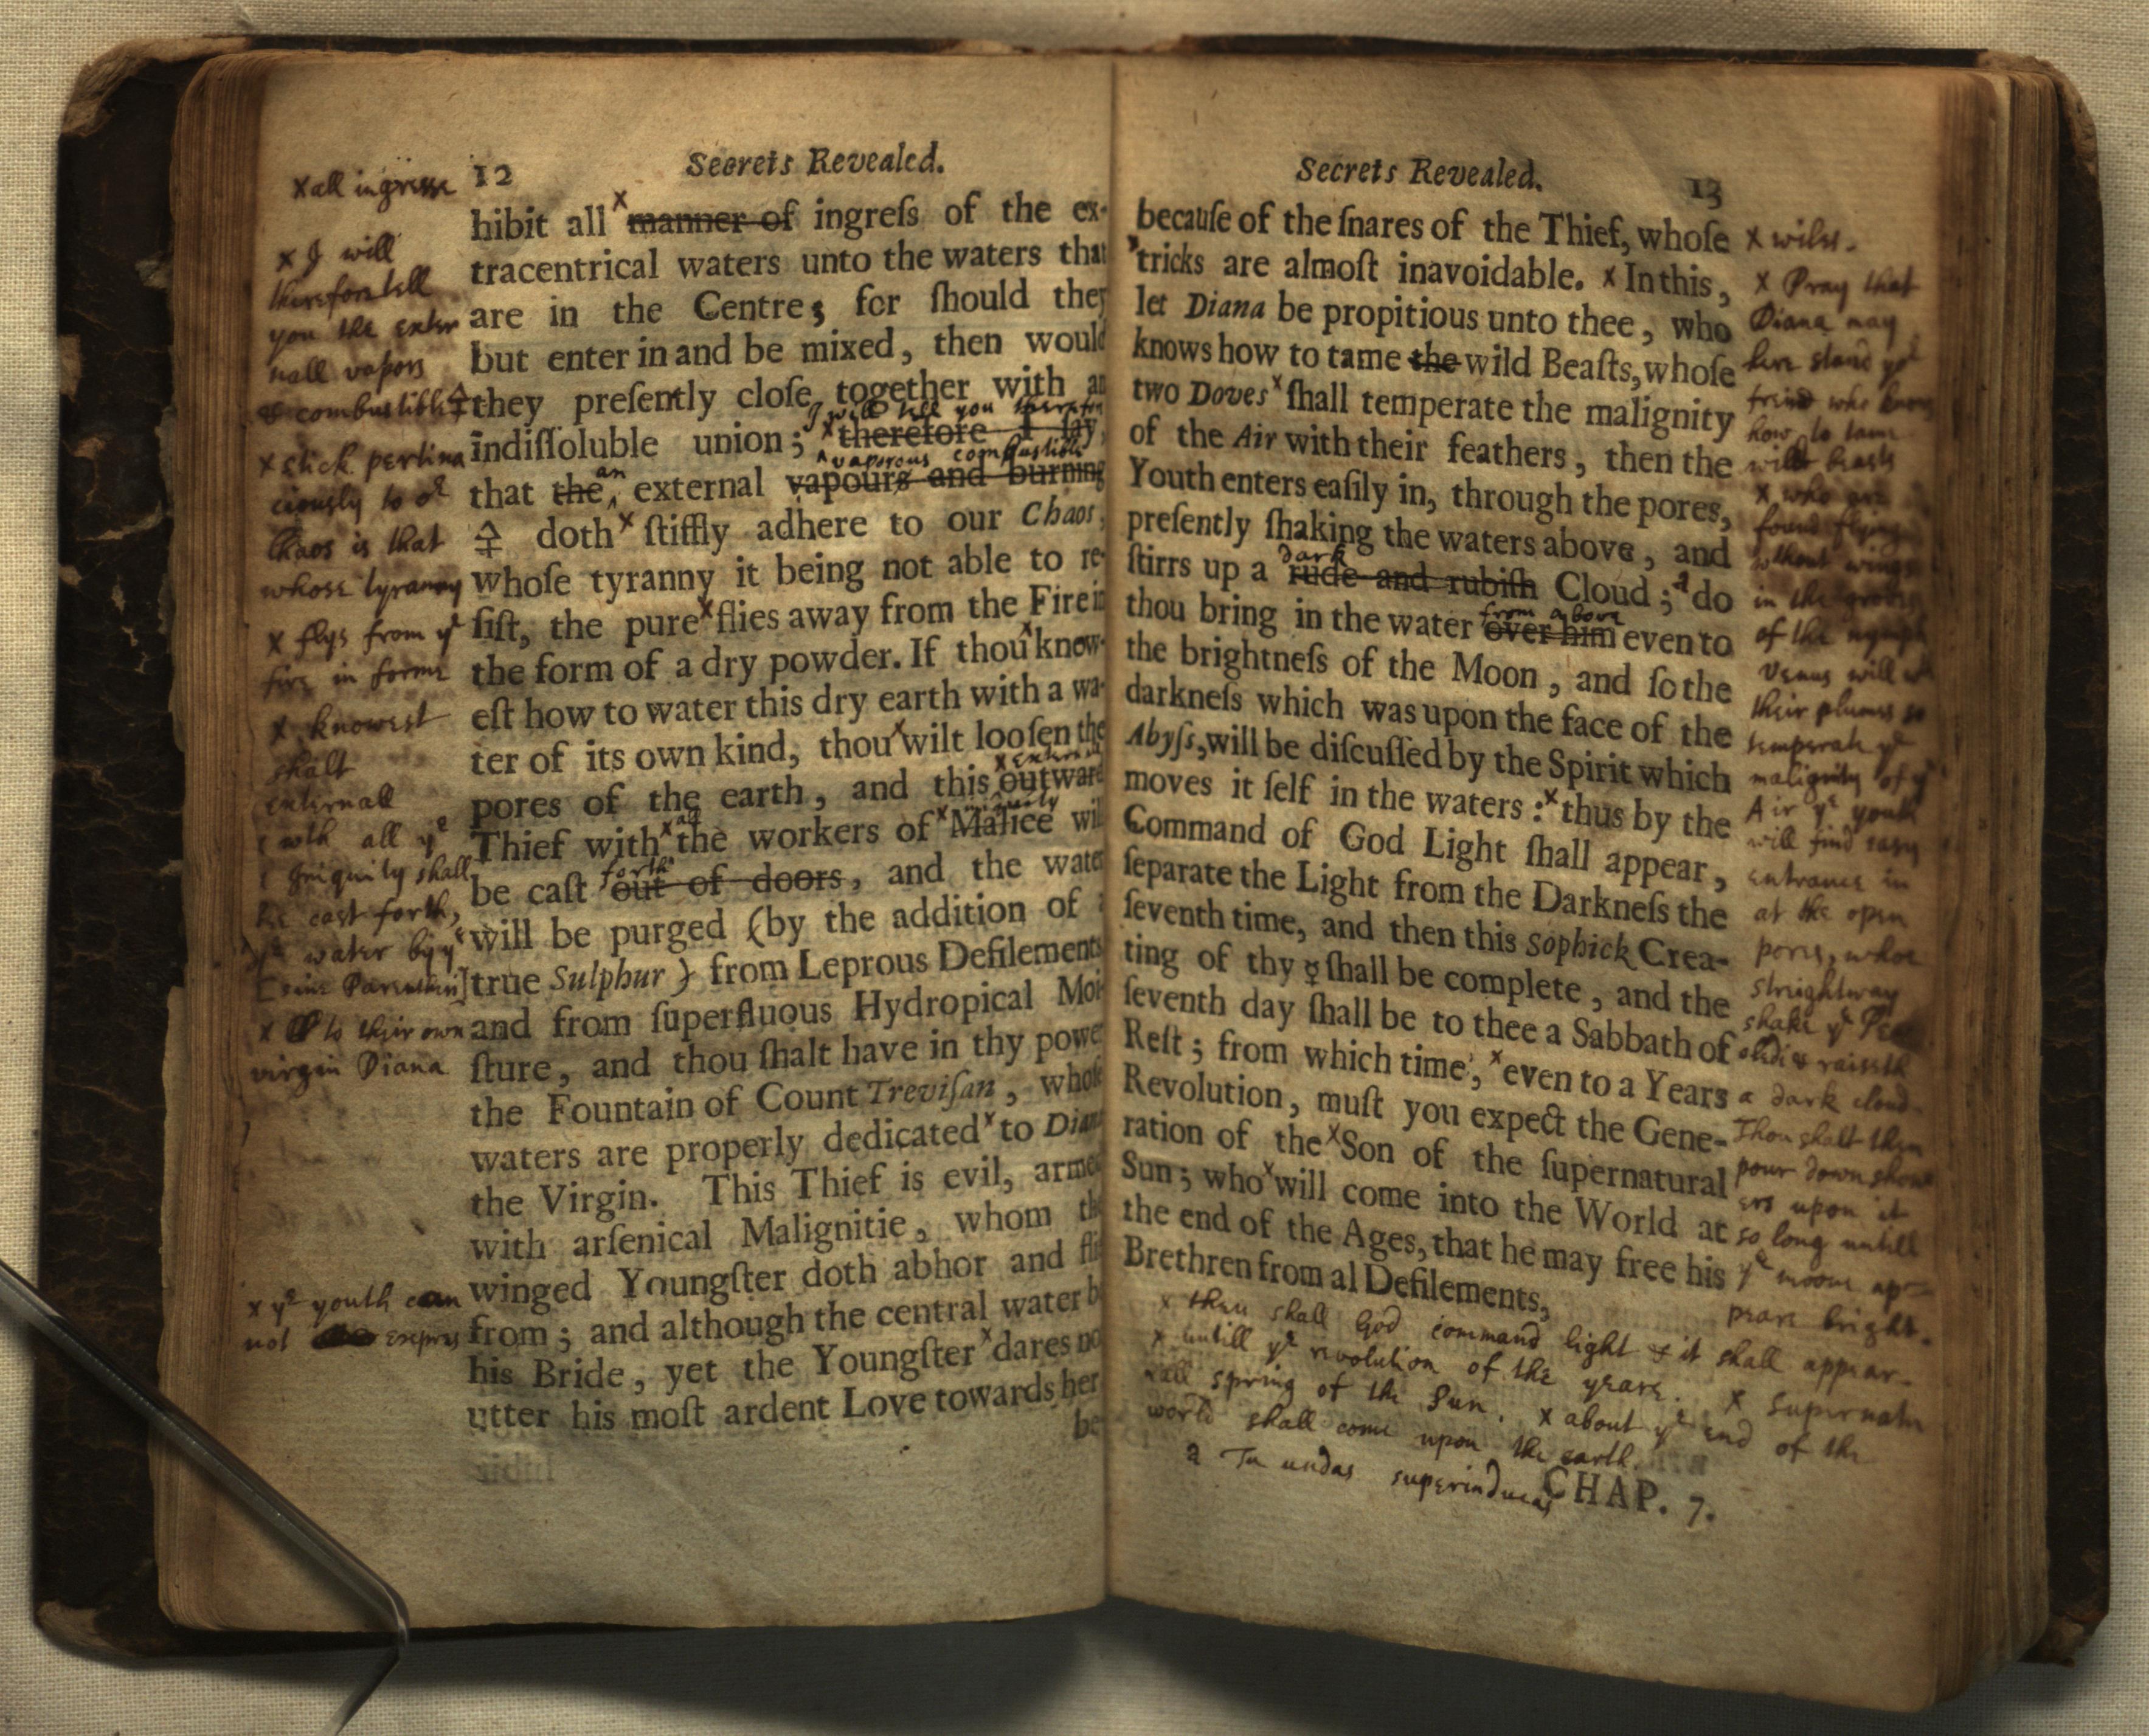 12 Secrets Revealed.
hibit all x manner of ingreſs of the ex-
tracentrical waters unto the waters that
are in the Centre; for ſhould they
but enter in and be mixed, then would
they preſently cloſe together with an
I will tell you therefore
indiſſoluble union; x therefore I ſay,
an vaporous combustible
that the external vapours and burning
🜍 doth x ſtiffly adhere to our Chaos,
whoſe tyranny it being not able to re-
ſiſt, the pure x flies away from the Fire in
the form of a dry powder. If thou x know-
eſt how to water this dry earth with a wa-
ter of its own kind, thou x wilt looſen the
x external
pores of the earth, and this outward
all iniquity
Thief with x the workers of x Malice will
forth
be caſt out of doors, and the water
will be purged (by the addition of a
true Sulphur) from Leprous Defilements
and from ſuperfluous Hydropical Moi-
ſture, and thou ſhalt have in thy power
the Fountain of Count Treviſan, whoſe
waters are properly dedicated x to Diana
the Virgin. This Thief is evil, armed
with arſenical Malignitie, whom the
winged Youngſter doth abhor and flie
from; and although the central water be
his Bride, yet the Youngſter x dares not
utter his moſt ardent Love towards her
be-
x all ingresse
x I will
therefore tell
you the exter
nall vapors
& combustible 🜍
x stick pertina
ciously to or
Chaos is that
whose tyranny
x flys from ye
fire in forme
x knowest
shalt
externall
wth all ye
Iniquity shall
be cast forth,
ye water by ye
[sine Parenthesi]
x to their own
virgin Diana
x ye youth can
not express
Secrets Revealed. 13
becauſe of the ſnares of the Thief, whoſe
x tricks are almoſt inavoidable. x In this,
let Diana be propitious unto thee, who
knows how to tame the wild Beaſts, whoſe
two Doves x ſhall temperate the malignity
of the Air with their feathers, then the
Youth enters eaſily in, through the pores,
preſently ſhaking the waters above, and
dark
ſtirrs up a rude and rubiſh Cloud; a do
from above
thou bring in the water over him even to
the brightneſs of the Moon, and ſo the
darkneſs which was upon the face of the
Abyſs, will be diſcuſſed by the Spirit which
moves it ſelf in the waters: x thus by the
Command of God Light ſhall appear,
ſeparate the Light from the Darkneſs the
ſeventh time, and then this Sophick Crea-
ting of thy ☿ ſhall be complete, and the
ſeventh day ſhall be to thee a Sabbath of
Reſt; from which time, x even to a Years
Revolution, muſt you expect the Gene-
ration of the x Son of the ſupernatural
Sun; who x will come into the World at
the end of the Ages, that he may free his
Brethren from al Defilements,
x wiles.
x Pray that
Diana may
here stand yor
freind who knows
how to tame
wild beasts
x who are
found flying
without wings
in the groves
of the nymph
Venus will wth
their plumes so
temperate ye
malignity of ye
Air ye youth
will find easy
entrance in
at the open
pores, whoe
streightway
shake ye
& raiseth
a dark cloud.
Thou shalt then
pour down show
ers upon it
so long untill
ye moone ap-
peare bright.
x then shall God command light & it shall appear.
x untill ye revolution of the yeare. x supernatu
rall spring of the Sun. x about ye end of the
world shall come upon the earth.
a Tu undas superinducas
CHAP. 7.